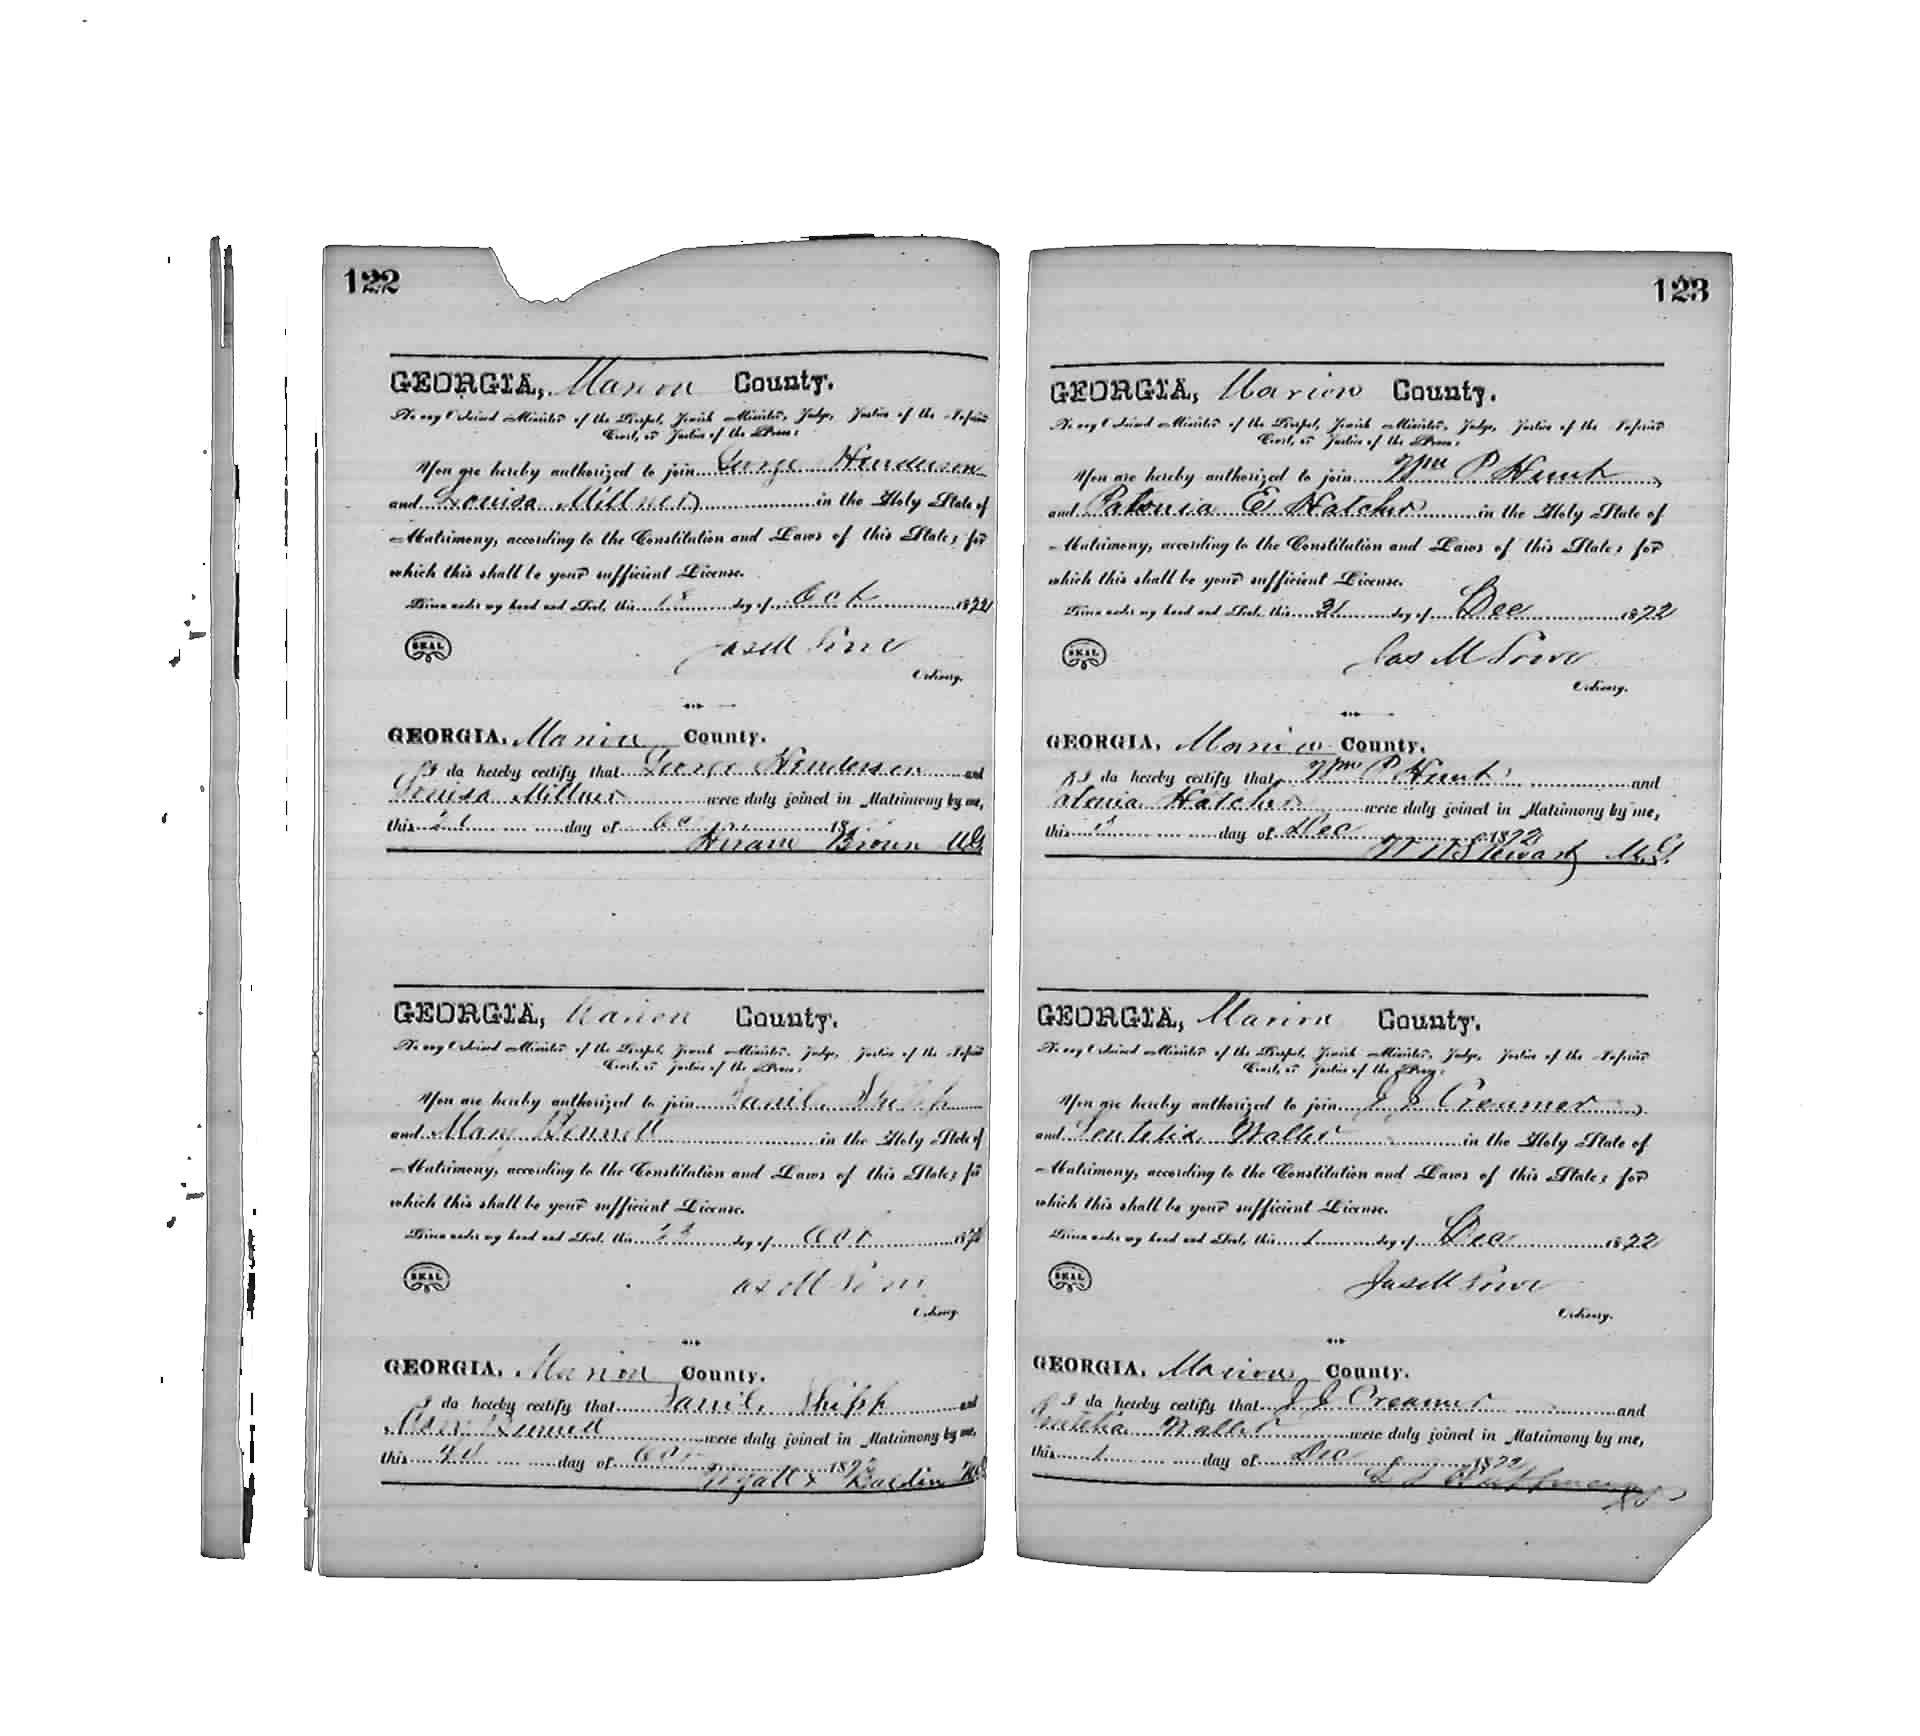 122
GEORGIA, Marion County.
To any Ordained Minister of the Gospel, Jewish Minister, Judge, Justice of the Inferior
Court, or Justice of the Peace:
You are hereby authorized to join George Henderson
and Louisa Millner in the Holy State of
Matrimony, according to the Constitution and Laws of this State; for
which this shall be your sufficient License.
Given under my hand and Seal, this 18 day of Oct 1872
SEAL
Jas M Lowe
Ordinary.
GEORGIA, Marion County.
I do hereby certify that George Henderson and
Louisa Millner were duly joined in Matrimony by me,
this day of Oct 18
Hiram Brown MG
GEORGIA, Marion County.
To any Ordained Minister of the Gospel, Jewish Minister, Judge, Justice of the Inferior
Court, or Justice of the Peace:
You are hereby authorized to join Daniel Shipp
and Mary Bennett in the Holy State of
Matrimony, according to the Constitution and Laws of this State; for
which this shall be your sufficient License.
Given under my hand and Seal, this 23 day of Oct 187
SEAL
Jas M Lowe
Ordinary.
GEORGIA, Marion County.
I do hereby certify that Daniel Shipp and
Bennett were duly joined in Matrimony by me,
this day of Oct 1872
Wyatt MG
123
GEORGIA, Marion County.
To any Ordained Minister of the Gospel, Jewish Minister, Judge, Justice of the Inferior
Court, or Justice of the Peace:
You are hereby authorized to join Wm P Hunt
and Patonia E Hatcher in the Holy State of
Matrimony, according to the Constitution and Laws of this State; for
which this shall be your sufficient License.
Given under my hand and Seal, this day of Dec 1872
SEAL
Jas M Lowe
Ordinary.
GEORGIA, Marion County.
I do hereby certify that Wm P Hunt and
Hatcher were duly joined in Matrimony by me,
this day of Dec 1872
Stewart M.G.
GEORGIA, Marion County.
To any Ordained Minister of the Gospel, Jewish Minister, Judge, Justice of the Inferior
Court, or Justice of the Peace:
You are hereby authorized to join J J Creamer
and Waller in the Holy State of
Matrimony, according to the Constitution and Laws of this State; for
which this shall be your sufficient License.
Given under my hand and Seal, this 1 day of Dec 1872
SEAL
Jas M Lowe
Ordinary.
GEORGIA, Marion County.
I do hereby certify that J J Creamer and
Waller were duly joined in Matrimony by me,
this 1 day of Dec 1872